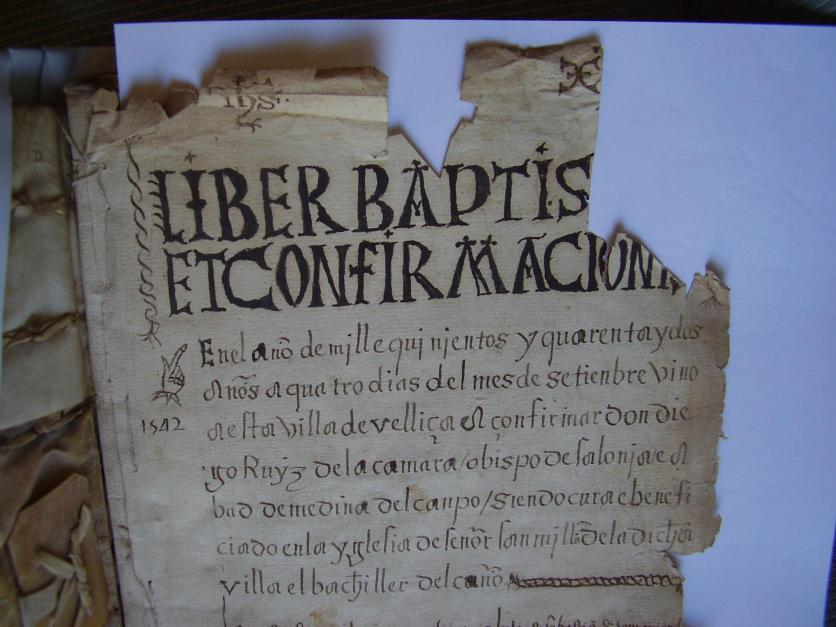 Jhs
LIBER BAPTIS
ET CONFIRMACION
En el año de mjlle quinjentos y quarenta y dos
años a quatro dias del mes de setienbre vino
1542
a esta villa de velliça a confirmar don die
go Ruyz de la camara / obispo de salonja e a
bad de medina del canpo / siendo cura e benefi
ciado en la yglesia de señor san mjllã de la dicha
villa el bachiller del caño